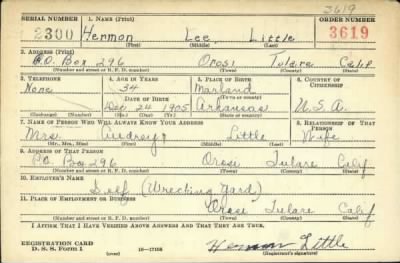 3619
SERIAL NUMBER 1. NAME (Print) ORDER NUMBER
2300 Hermon Lee Little 3619
(First) (Middle) (Last)
2. ADDRESS (Print)
P.O. Box 296 Orosi Tulare Calif
(Number and street or R. F. D. number) (Town) (County) (State)
3. TELEPHONE 4. AGE IN YEARS 5. PLACE OF BIRTH 6. COUNTRY OF CITIZENSHIP
None 34 Marland
DATE OF BIRTH (Town or county)
Dec. 24 1905 Arkansas U.S.A.
(Exchange) (Number) (Mo.) (Day) (Yr.) (State or country)
7. NAME OF PERSON WHO WILL ALWAYS KNOW YOUR ADDRESS 8. RELATIONSHIP OF THAT PERSON
Mrs. Audrey Little Wife
(Mr., Mrs., Miss) (First) (Middle) (Last)
9. ADDRESS OF THAT PERSON
P.O. Box 296 Orosi Tulare Calif
(Number and street or R. F. D. number) (Town) (County) (State)
10. EMPLOYER'S NAME
Self (Wrecking Yard)
11. PLACE OF EMPLOYMENT OR BUSINESS
Orosi Tulare Calif
(Number and street or R. F. D. number) (Town) (County) (State)
I AFFIRM THAT I HAVE VERIFIED ABOVE ANSWERS AND THAT THEY ARE TRUE.
REGISTRATION CARD
D. S. S. Form 1 (over) 16-17105 Hermon Little
(Registrant's signature)